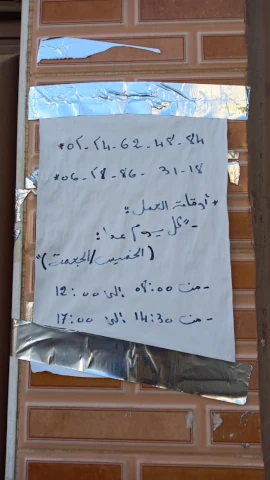 *05-24-62-48-84
*06-28-86-31-18
* أوقات العمل:
- كل يوم عدا:
(الخميس/الجمعة)
- من 08:00 إلى 12:00
- من 14:30 إلى 17:00